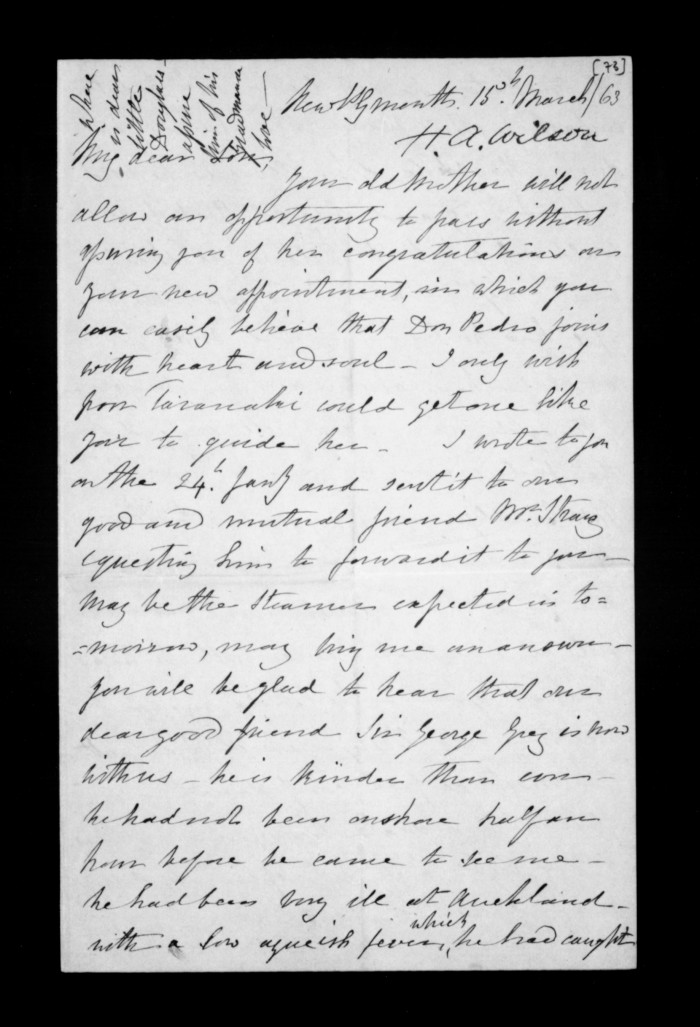 [73]
where
is dear
little
Douglas-
alpine
him of his
Grandmama
love —
New Plymouth. 15th March/63
H. A. Wilson
My dear Son,
your old Mother will not
allow an opportunity to pass without
assuring you of her congratulations on
your new appointment, in which you
can easily believe that Don Pedro joins
with heart and soul - I only wish
poor Taranaki could get one like
you to guide her - I wrote to you
on the 24th Jany and sent it to our
good and mutual friend Mr. Strang
requesting him to forward it to you -
May be the Steamer expected in to=
=morrow, may bring me an answer -
you will be glad to hear that our
dear good friend Sir George Grey is now
with us - he is kinder than ever -
he had not been onshore half an
hour before he came to see me -
he had been very ill at Auckland -
with a low agueish fever, which he had caught